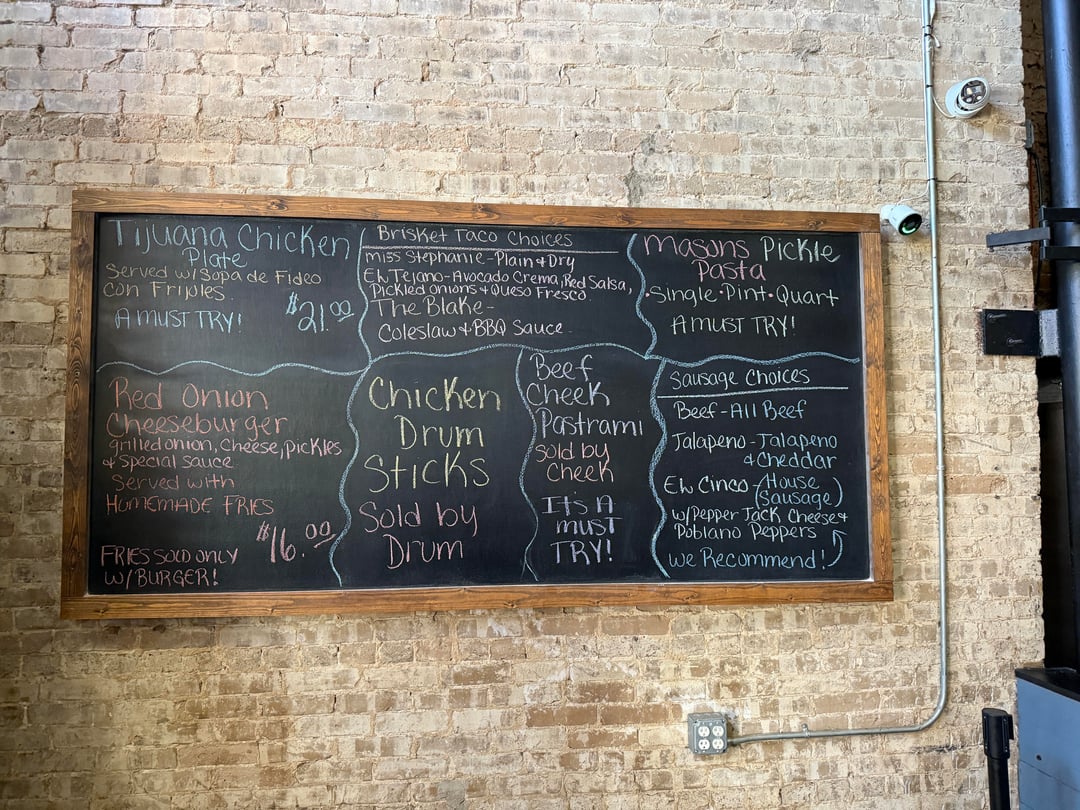 Tijuana Chicken
Plate
Served w/Sopa de Fideo
con Frijoles.
A MUST TRY!
$21.00
Brisket Taco Choices
Miss Stephanie-Plain & Dry
EL Tejano-Avocado Crema, Red Salsa,
Pickled onions & Queso Fresco.
The Blake-
Coleslaw & BBQ Sauce
Masons Pickle
Pasta
•Single•Pint•Quart
A MUST TRY!
Red Onion
Cheeseburger
grilled onion, Cheese, Pickles
& Special Sauce
Served with
HOMEMADE FRIES
$16.00
FRIES SOLD ONLY
W/BURGER!
Chicken
Drum
Sticks
Sold by
Drum
Beef
Cheek
Pastrami
Sold by
Cheek
It's A
must
TRY!
Sausage Choices
Beef-All Beef
Jalapeno-Jalapeno
& Cheddar
EL Cinco-(House
Sausage)
w/Pepper Jack Cheese &
Poblano Peppers
We Recommend!